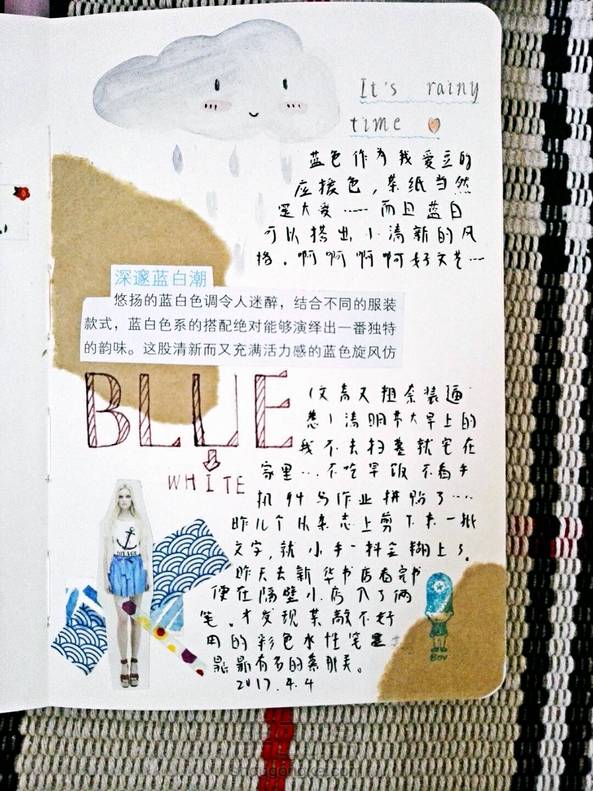 It's rainy
time
蓝色作为我爱豆的
应援色，紫纸当然
是大爱……而且蓝白
可以搭出小清新的风
格。啊啊啊啊好文艺…
深邃蓝白潮
悠扬的蓝白色调令人迷醉，结合不同的服装
款式，蓝白色系的搭配绝对能够演绎出一番独特
的韵味。这股清新而又充满活力感的蓝色旋风仿
BLUE
WHITE
清明节大早上的
我不去扫墓就宅在
家里…不吃早饭不看手
机 写作业拼贴了……
昨儿个从杂志上剪下来一批
文字，就小手一抖全糊上了。
昨天去新华书店看完书
便在隔壁小店入了两
笔。才发现某敌不好
用的彩色水性笔
2017.4.4
BOY